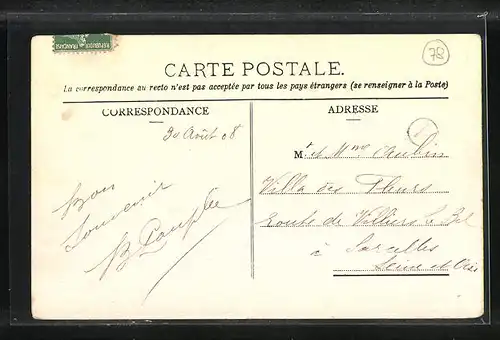 RÉPUBLIQUE FRANÇAISE
78
CARTE POSTALE.
La correspondance au recto n'est pas acceptée par tous les pays étrangers (se renseigner à la Poste)
CORRESPONDANCE
30 Août 08
Bon
Souvenir
ADRESSE
Mr et Mme Aubin
Villa des Fleurs
route de Villiers le Bel
à Sarcelles
Seine et Oise